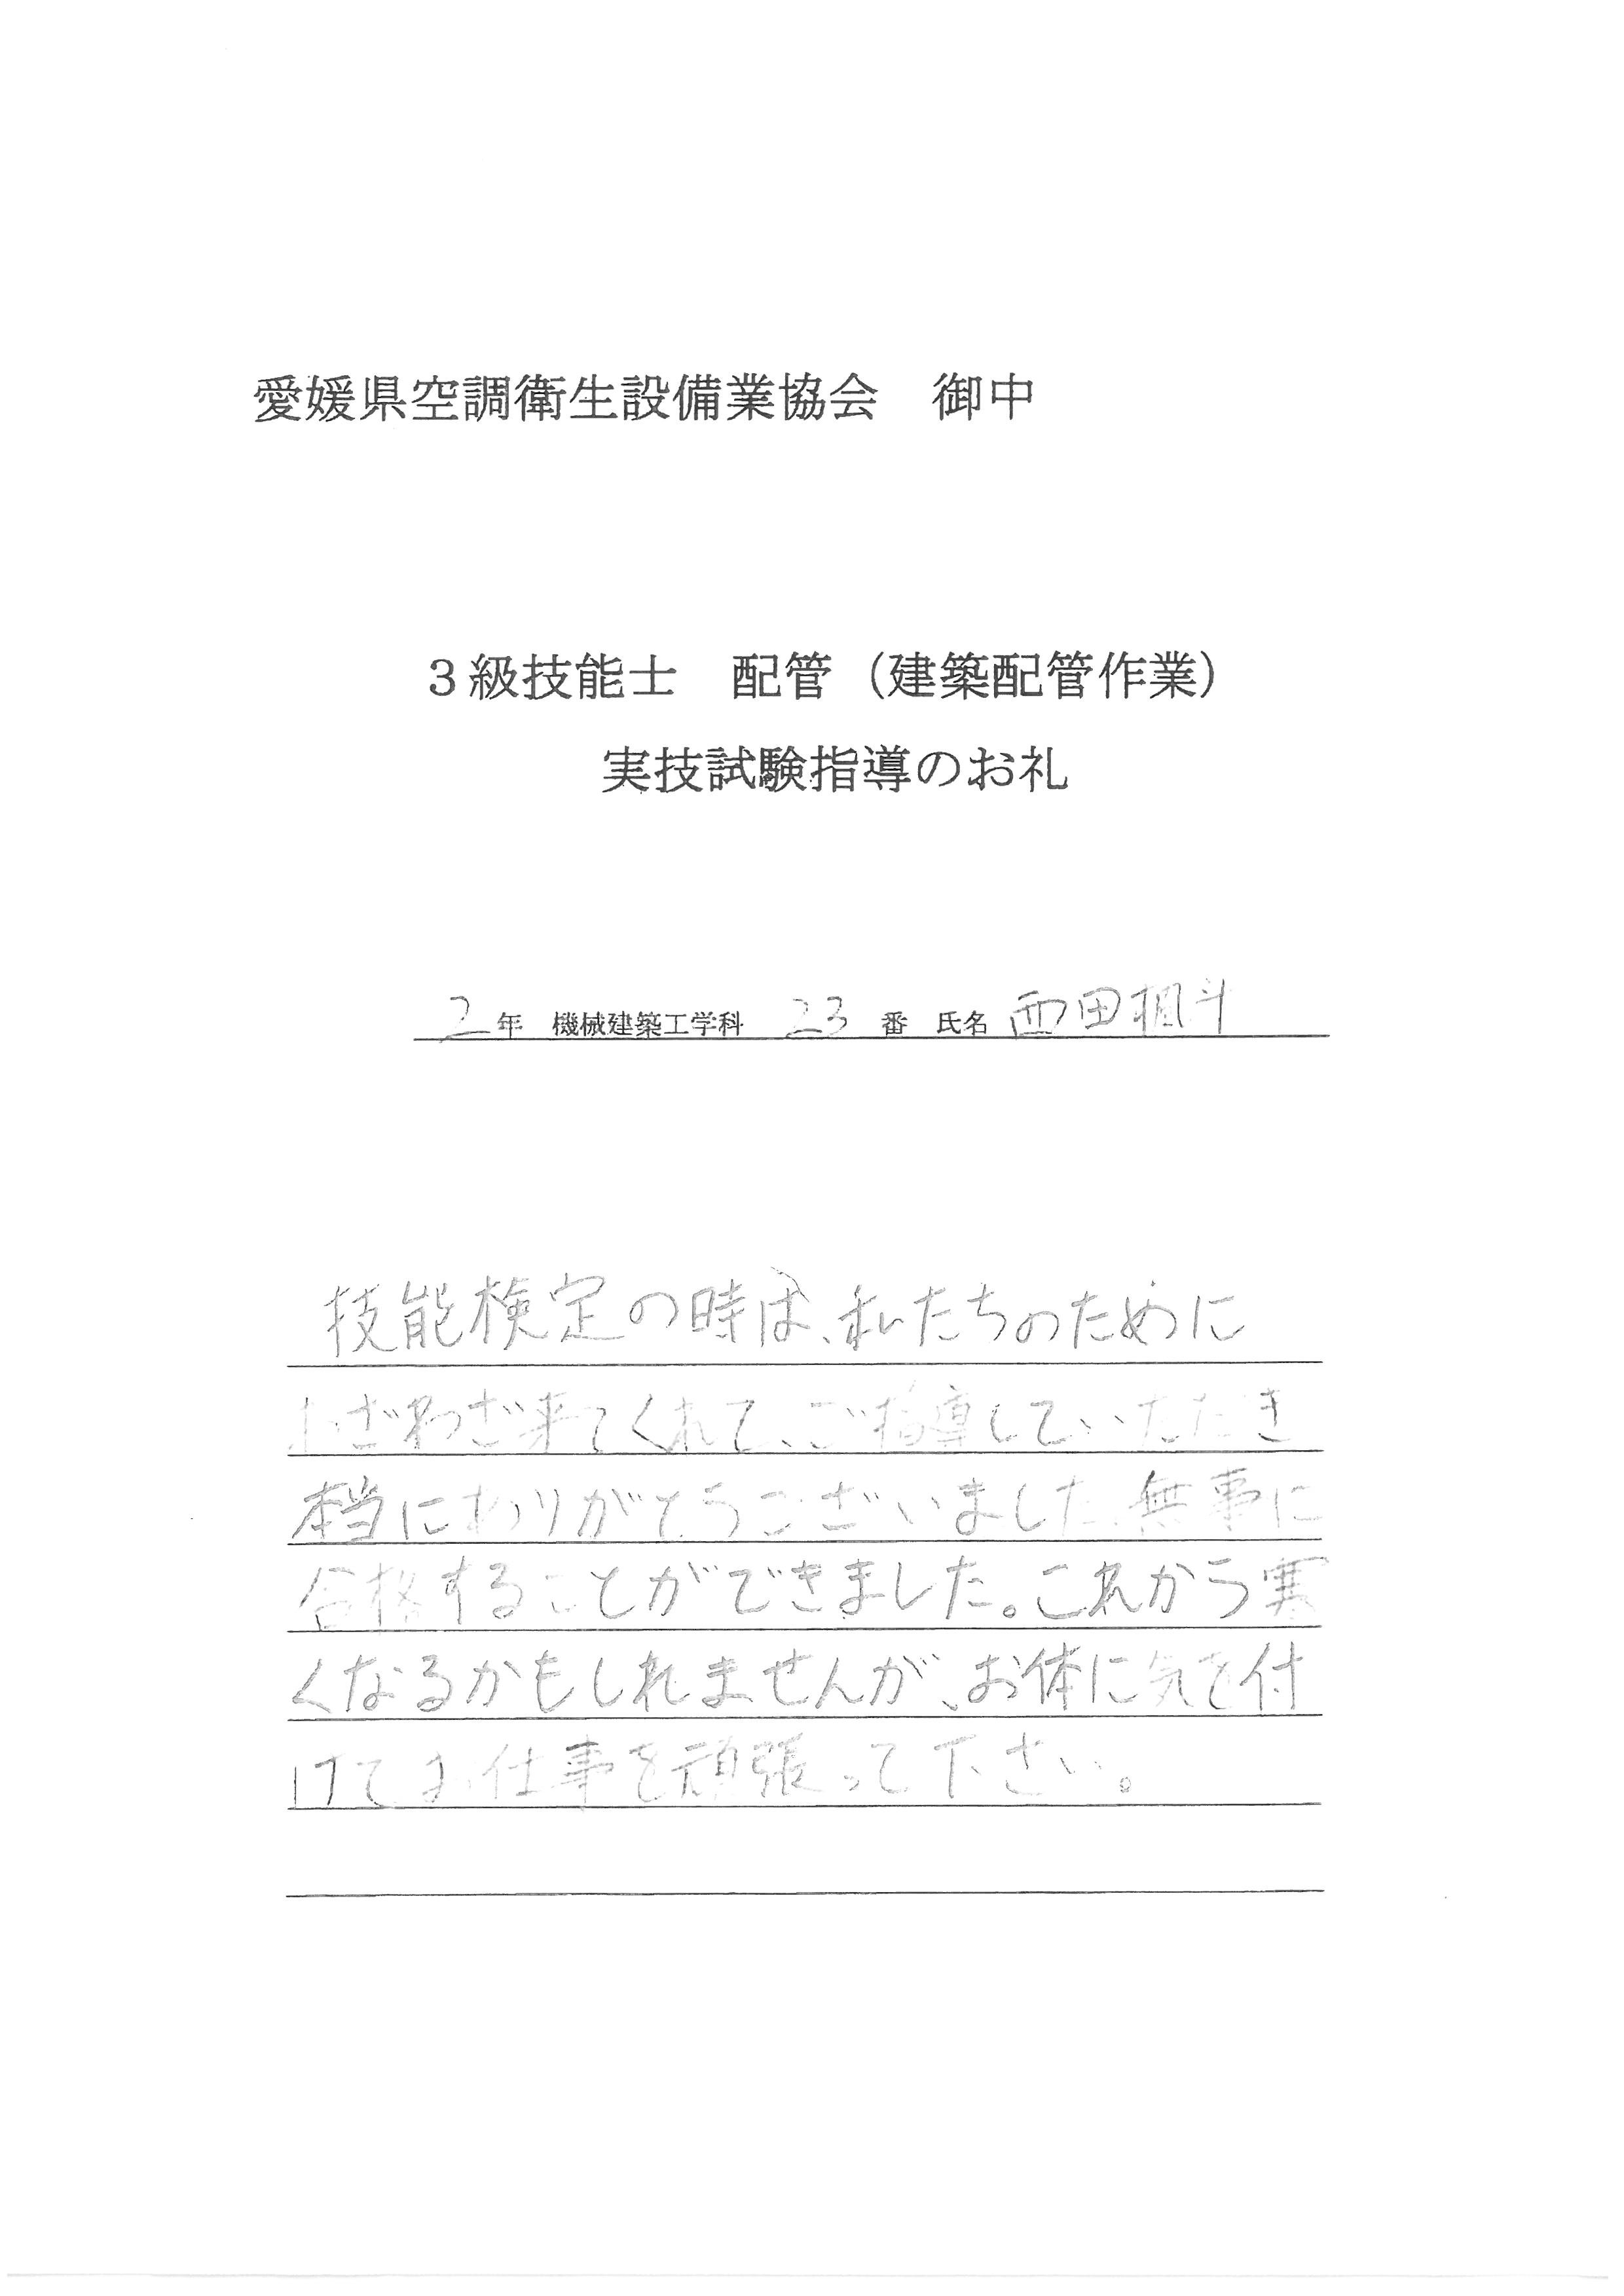 愛媛県空調衛生設備業協会　御中
３級技能士　配管（建築配管作業）
実技試験指導のお礼
2年　機械建築工学科　23番　氏名 西田楓斗
技能検定の時は、私たちのために
わざわざ来てくれて、ご指導していただき
本当にありがとうございました。無事に
合格することができました。これから寒
くなるかもしれませんが、お体に気を付
けてお仕事を頑張って下さい。